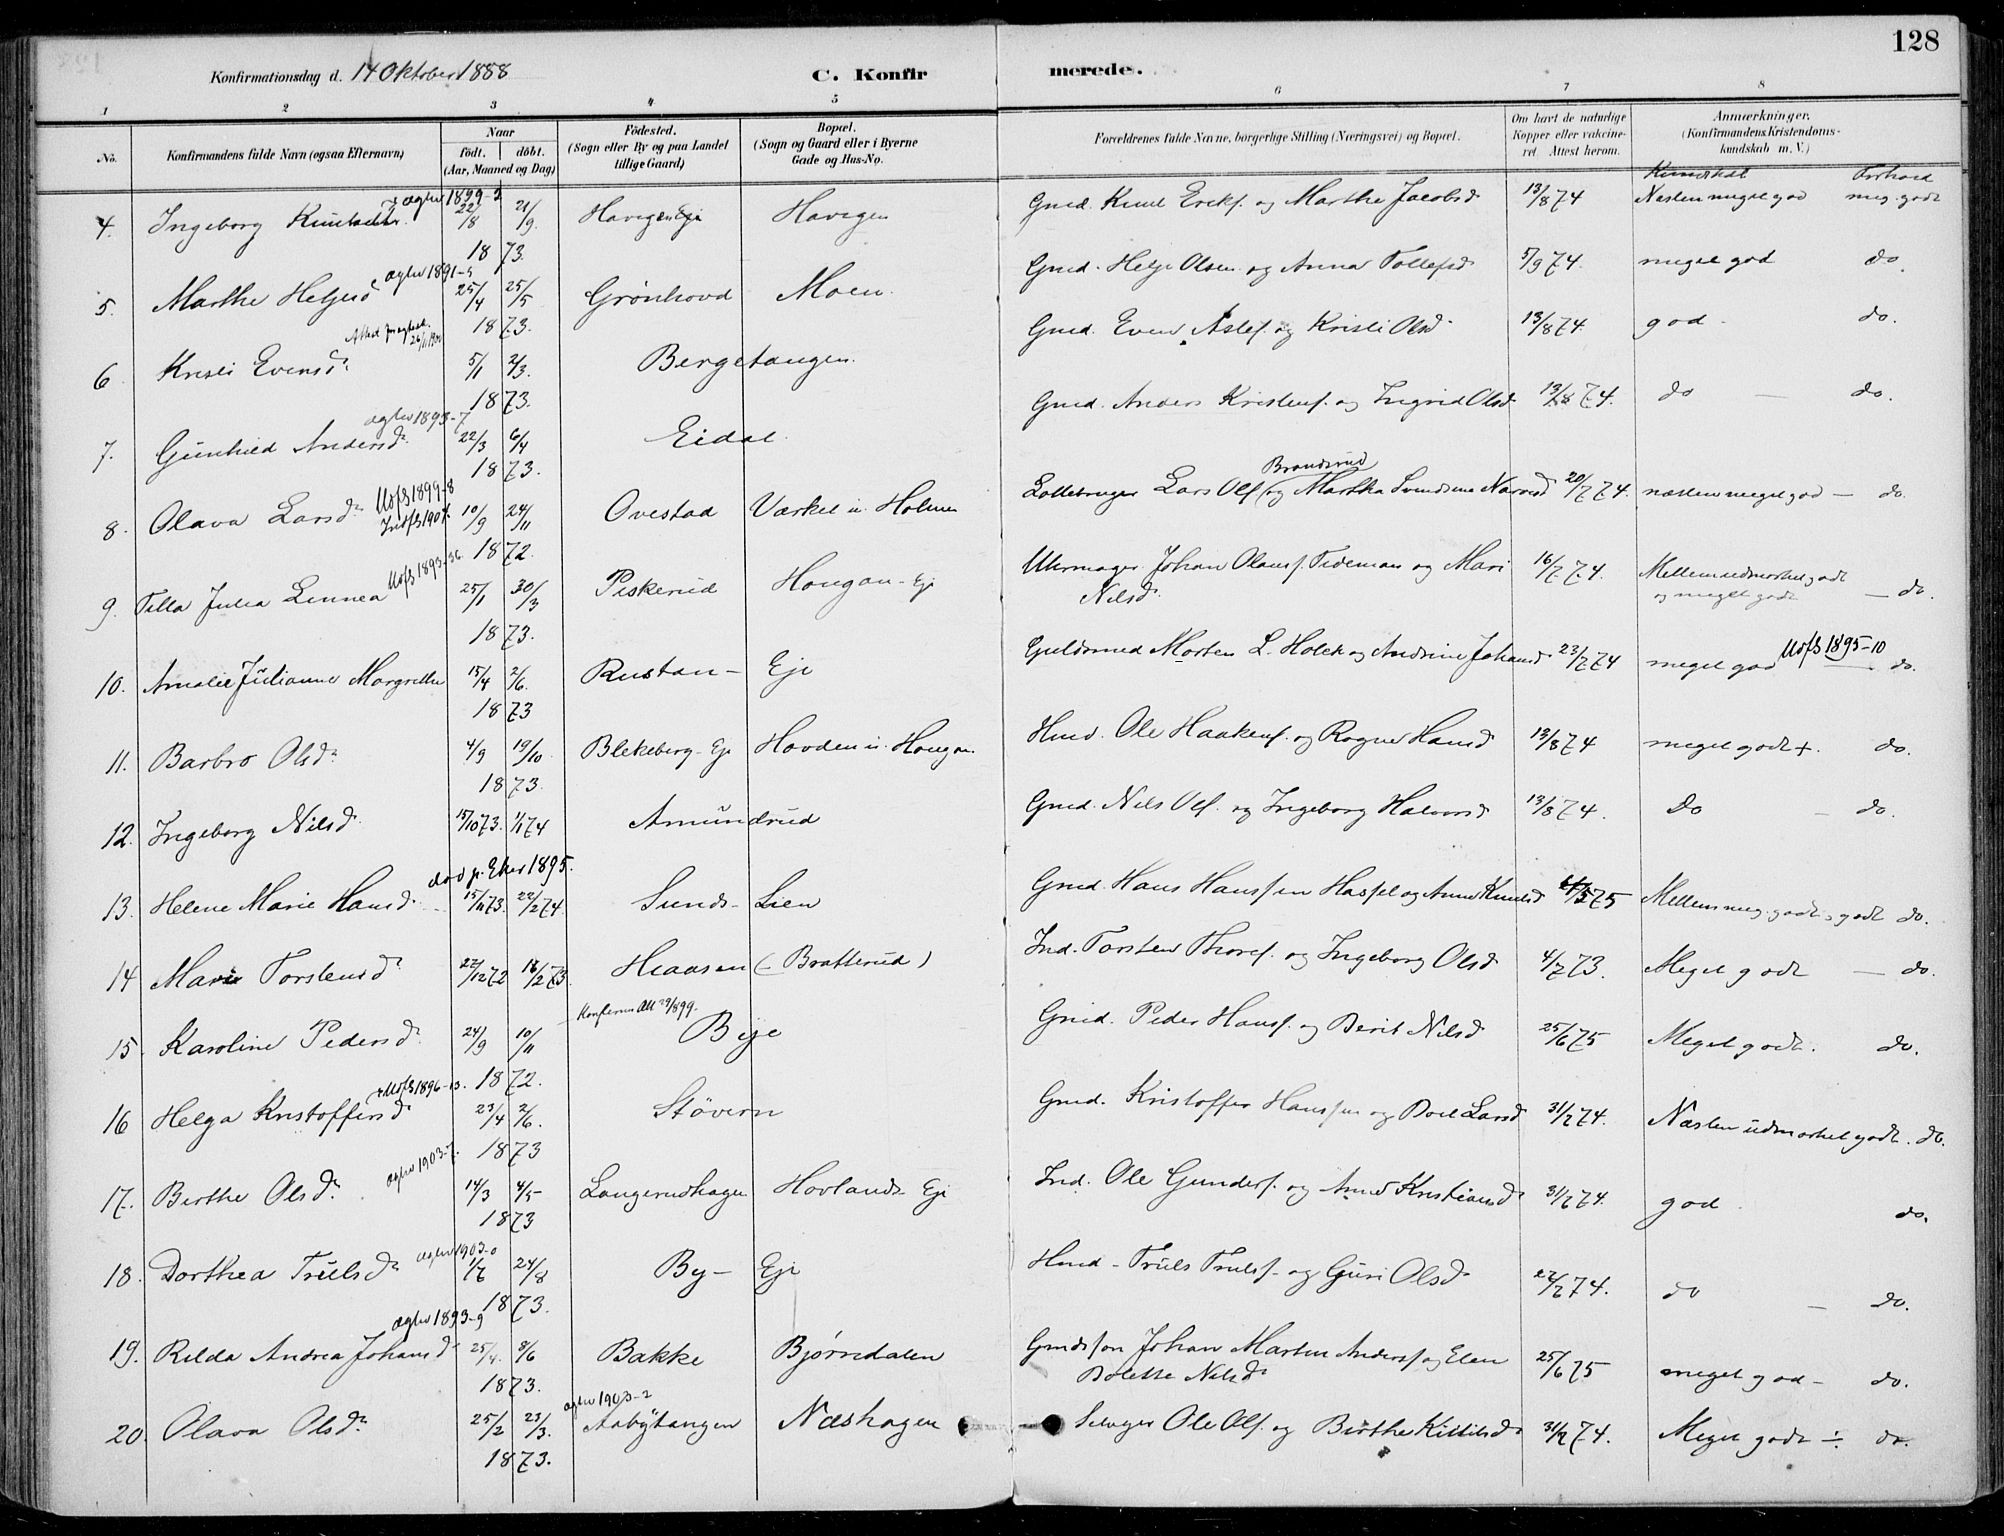 128
Konfirmationsdag d. 14 Oktober 1888
C. Konfirmerede.
1 2 3 4 5 6 7 8
No. Konfirmandens fulde Navn (ogsaa Efternavn) Naar födt. döbt. (Aar, Maaned og Dag) Födested. (Sogn eller By og paa Landet tillige Gaard) Bopæl. (Sogn og Gaard eller i Byerne Gade og Hus-No. Forældrenes fulde Navne, borgerlige Stilling (Næringsvei) og Bopæl. Om havt de naturlige Kopper eller vakcineret. Attest herom. Anmærkninger. (Konfirmandens Kristendomskundskab m. V.)
Kundskab Forhold
4. Ingeborg 22/8 21/9 1873. Havigen Eje Havigen Gmd. Knut Eriks. og Marthe Jacobsd 13/8 74 Næsten meget god meg. godt
ægtev 1891-5
5. Marthe Helgesd 25/4 25/5 1873. Grönhovd Moen Gmd. Helge Olsen og Anna Tollefsd 5/9 74. meget god do.
6. Kristi Evensd. 5/1 2/3 1873. Bergetangen Gmd. Even Aslef. og Kristi Olsd 13/8 74. god do.
ægtev 1893-7
7. Gunhild Andersd. 22/3 6/4 1873. Eidal Gmd. Anders Kristens. og Ingrid Olsd 13/8 74. do — do.
Udfl 1899-8
Indfl 1907.
8. Olava Larsd. 10/9 24/11 1872. Ovestad Værket u. Holmen Lars Ols. Brandsrud og Martha 20/7 74. næsten meget god — do.
Udfl 1893-36
9. Tilla Julia Linnea 25/1 30/3 1873. Piskerud Hougan - Eje Uhrmager Johan Olaus f. Tideman og Mari Nilsd. 16/7 74. Mellem udmærket godt og meget godt — do.
10. Amalie Julianne Margrethe 15/4 2/6. 1873 Rustan - Eje Guldsmed Morten L. Holck og Andrine Johansd 23/7 74 meget god Udfl 1895-10 do.
11. Barbro Olsd. 4/9 19/10 1873. Blekeberg - Eje Hovden u. Hougan. Hmd. Ole Haakens. og Ragne Hansd 13/8 74 meget godt +. do.
12. Ingeborg Nilsd. 15/10 73. 1/1 74 Amundrud Gmd. Nils Ols. og Ingeborg Halvorsd 13/8 74. Do — do.
död p. Eker 1895.
13. Helene Marie Hansd. 15/11 73. 22/2 74. Sunds - Lien Gmd. Hans Hanssen Hassel og Anne Knutsd 75 Mellem meg. godt og godt do.
14 Mari Torstensd. 22/12 72 16/2 73. Haasen (- Bratterud) Ind. Torsten Thores. og Ingeborg Olsd 4/7 73. Meget godt — do.
15. Karoline Pedersd. 24/9 10/11 1872. Beje Gmd. Peder Hans. og Berit Nilsd 25/6 75 Meget godt. do.
Udfl 1896-13.
16 Helga Kristoffersd. 23/4 2/6. 1873 Stövern Gmd. Kristoffer Hanssen og Boel Larsd 31/7 74. Næsten udmærket godt. do.
ægtev 1903-7.
17. Birthe Olsd. 14/3 4/5 1873 Langerudhagen Hovlands Eje Ind. Ole Gunders. og Anne Kristiansd 31/7 74. god do.
ægtev 1903-0
18. Dorthea Trulsd. 1/6 24/8 1873. By - Eje Hmd - Truls Truls. og Guri Olsd 74. do — do.
ægtev 1893-9
19. Rilda Andrea Johansd 25/4. 8/6 1873. Bakke Björndalen Gmdssön Johan Martin Anders. og Elen Bolette Nilsd 25/6 75 meget god - do.
ægtev 1903-2
20. Olava Olsd. 25/2 23/3. 1873. Aabytangen Næshagen Selveger Ole Ols. og Birthe Kittilsd 31/7 74. Meget godt ÷. do.